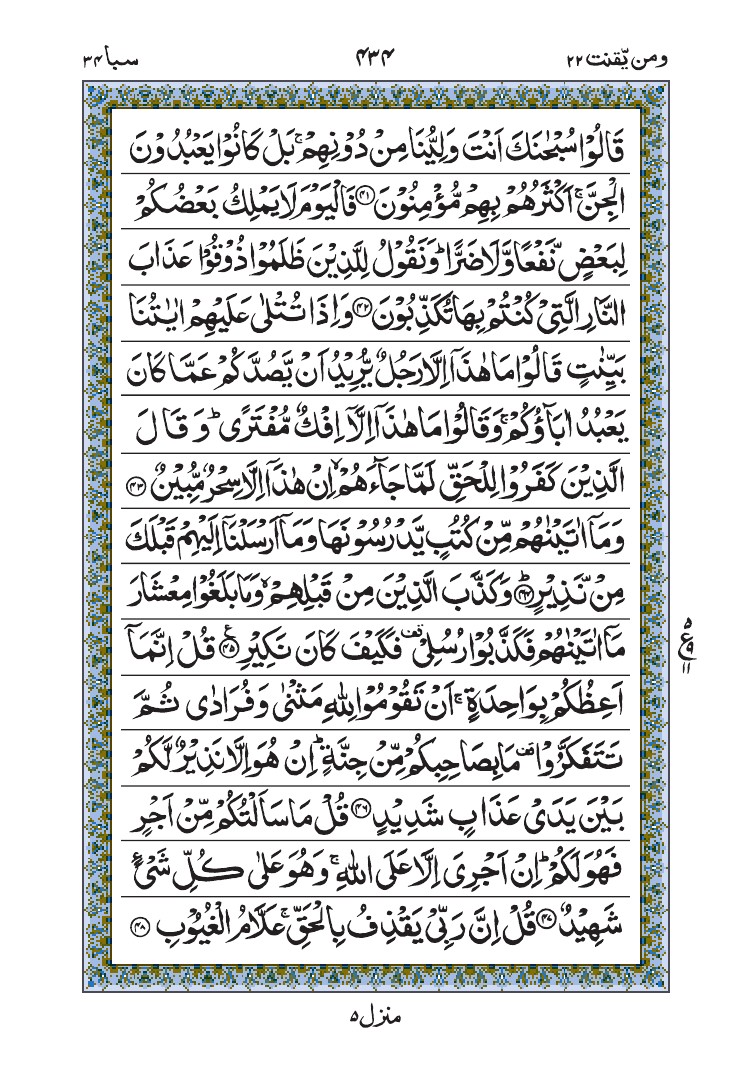 ومن یّقنت ۲۲
۴۳۴
سبا ۳۴
قَالُوْا سُبْحٰنَكَ اَنْتَ وَلِیُّنَا مِنْ دُوْنِهِمْ ۚ بَلْ كَانُوْا یَعْبُدُوْنَ
الْجِنَّ ۚ اَكْثَرُهُمْ بِهِمْ مُّؤْمِنُوْنَ ﴿۴۱﴾ فَالْیَوْمَ لَا یَمْلِكُ بَعْضُكُمْ
لِبَعْضٍ نَّفْعًا وَّلَا ضَرًّا ؕ وَنَقُوْلُ لِلَّذِیْنَ ظَلَمُوْا ذُوْقُوْا عَذَابَ
النَّارِ الَّتِیْ كُنْتُمْ بِهَا تُكَذِّبُوْنَ ﴿۴۲﴾ وَاِذَا تُتْلٰی عَلَیْهِمْ اٰیٰتُنَا
بَیِّنٰتٍ قَالُوْا مَا هٰذَاۤ اِلَّا رَجُلٌ یُّرِیْدُ اَنْ یَّصُدَّكُمْ عَمَّا كَانَ
یَعْبُدُ اٰبَآؤُكُمْ ۚ وَقَالُوْا مَا هٰذَاۤ اِلَّاۤ اِفْكٌ مُّفْتَرًی ؕ وَقَالَ
الَّذِیْنَ كَفَرُوْا لِلْحَقِّ لَمَّا جَآءَهُمْ ۙ اِنْ هٰذَاۤ اِلَّا سِحْرٌ مُّبِیْنٌ ﴿۴۳﴾
وَمَاۤ اٰتَیْنٰهُمْ مِّنْ كُتُبٍ یَّدْرُسُوْنَهَا وَمَاۤ اَرْسَلْنَاۤ اِلَیْهِمْ قَبْلَكَ
مِنْ نَّذِیْرٍ ﴿۴۴﴾ؕ وَكَذَّبَ الَّذِیْنَ مِنْ قَبْلِهِمْ ۙ وَمَا بَلَغُوْا مِعْشَارَ
مَاۤ اٰتَیْنٰهُمْ فَكَذَّبُوْا رُسُلِیْ ۫ فَكَیْفَ كَانَ نَكِیْرِ ﴿۴۵﴾ قُلْ اِنَّمَاۤ
اَعِظُكُمْ بِوَاحِدَةٍ ۚ اَنْ تَقُوْمُوْا لِلّٰهِ مَثْنٰی وَفُرَادٰی ثُمَّ
تَتَفَكَّرُوْا ۫ مَا بِصَاحِبِكُمْ مِّنْ جِنَّةٍ ؕ اِنْ هُوَ اِلَّا نَذِیْرٌ لَّكُمْ
بَیْنَ یَدَیْ عَذَابٍ شَدِیْدٍ ﴿۴۶﴾ قُلْ مَا سَاَلْتُكُمْ مِّنْ اَجْرٍ
فَهُوَ لَكُمْ ؕ اِنْ اَجْرِیَ اِلَّا عَلَی اللّٰهِ ۚ وَهُوَ عَلٰی كُلِّ شَیْءٍ
شَهِیْدٌ ﴿۴۷﴾ قُلْ اِنَّ رَبِّیْ یَقْذِفُ بِالْحَقِّ ۚ عَلَّامُ الْغُیُوْبِ ﴿۴۸﴾
۵
ع
۹
۱۱
منزل ۵